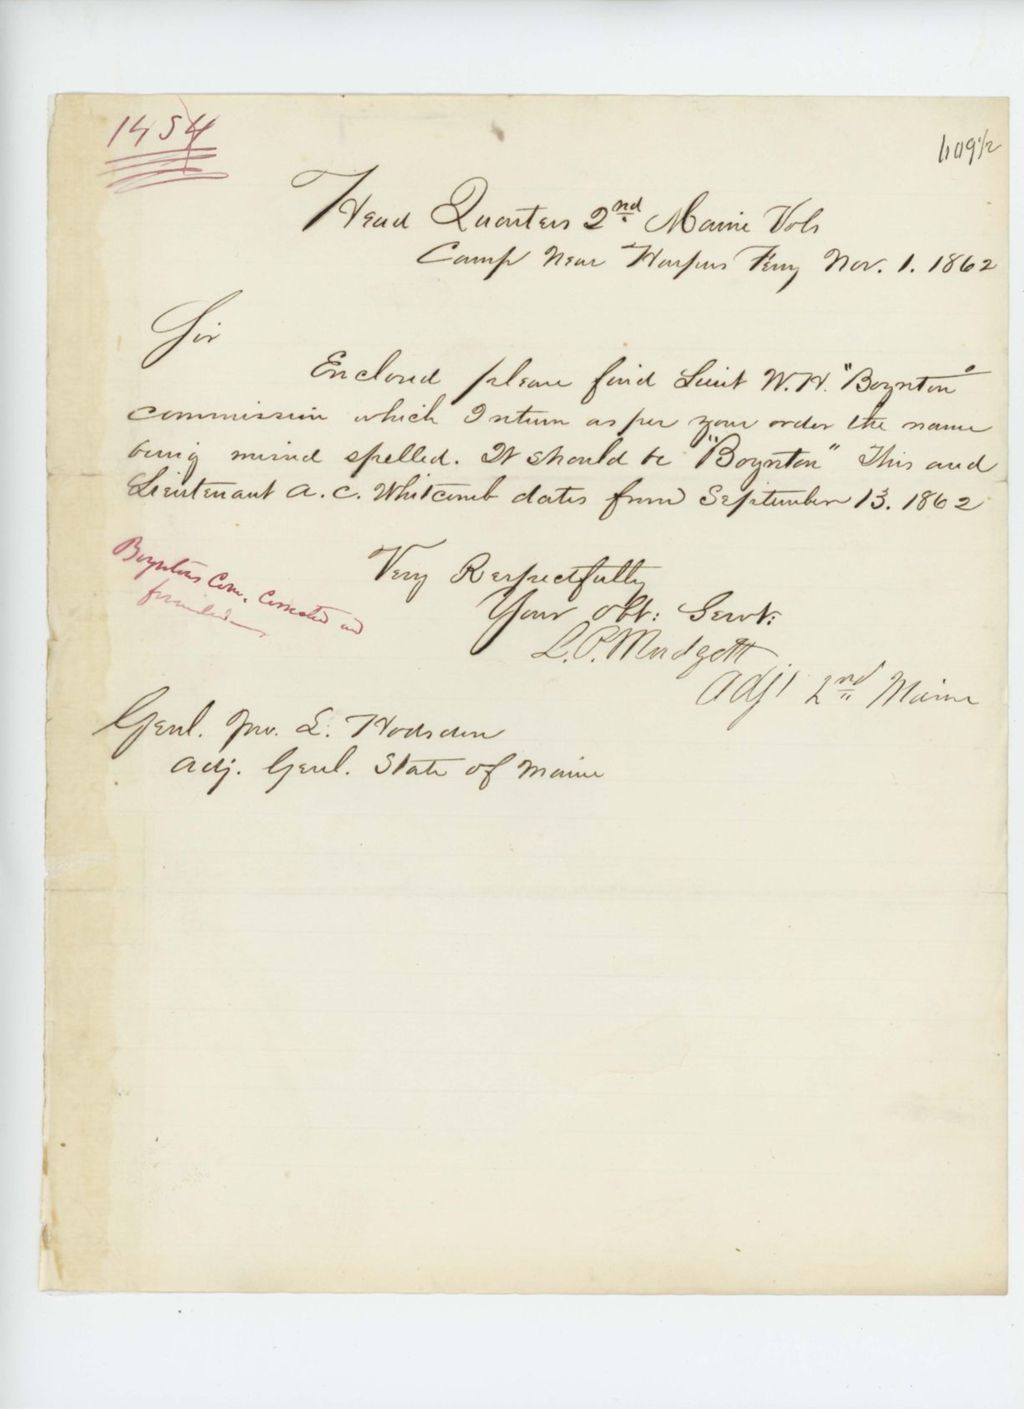 1454
609½
Head Quarters 2nd Maine Vols
Camp Near Harpers Ferry Nov. 1. 1862
Sir
Enclosed please find Lieut W. H. "Boynton"
commission which I return as per your order the name
being missed spelled. It should be "Boynton" This and
Lieutenant A. C. Whitcomb dates from September 13. 1862
Very Respectfully
Your obt: Servt:
L. P. Mudgett
Adjt 2nd Maine
Boyntons Com. Corrected and
forwarded
Genl. Jno. L. Hodsdon
Adj. Genl. State of Maine